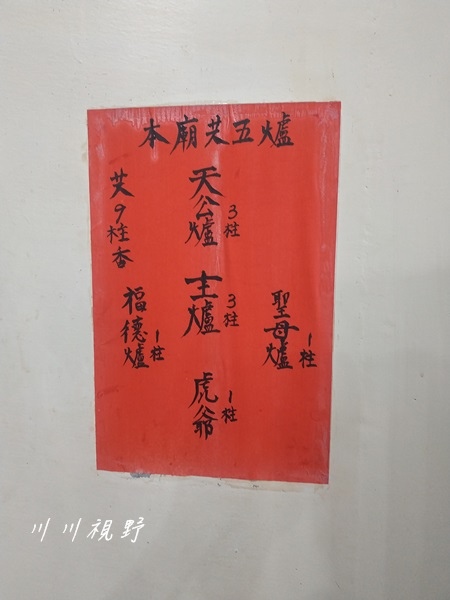 本廟共五爐
天公爐 3柱
主爐 3柱
聖母爐 1柱
福德爐 1柱
虎爺 1柱
共9柱香
川川視野